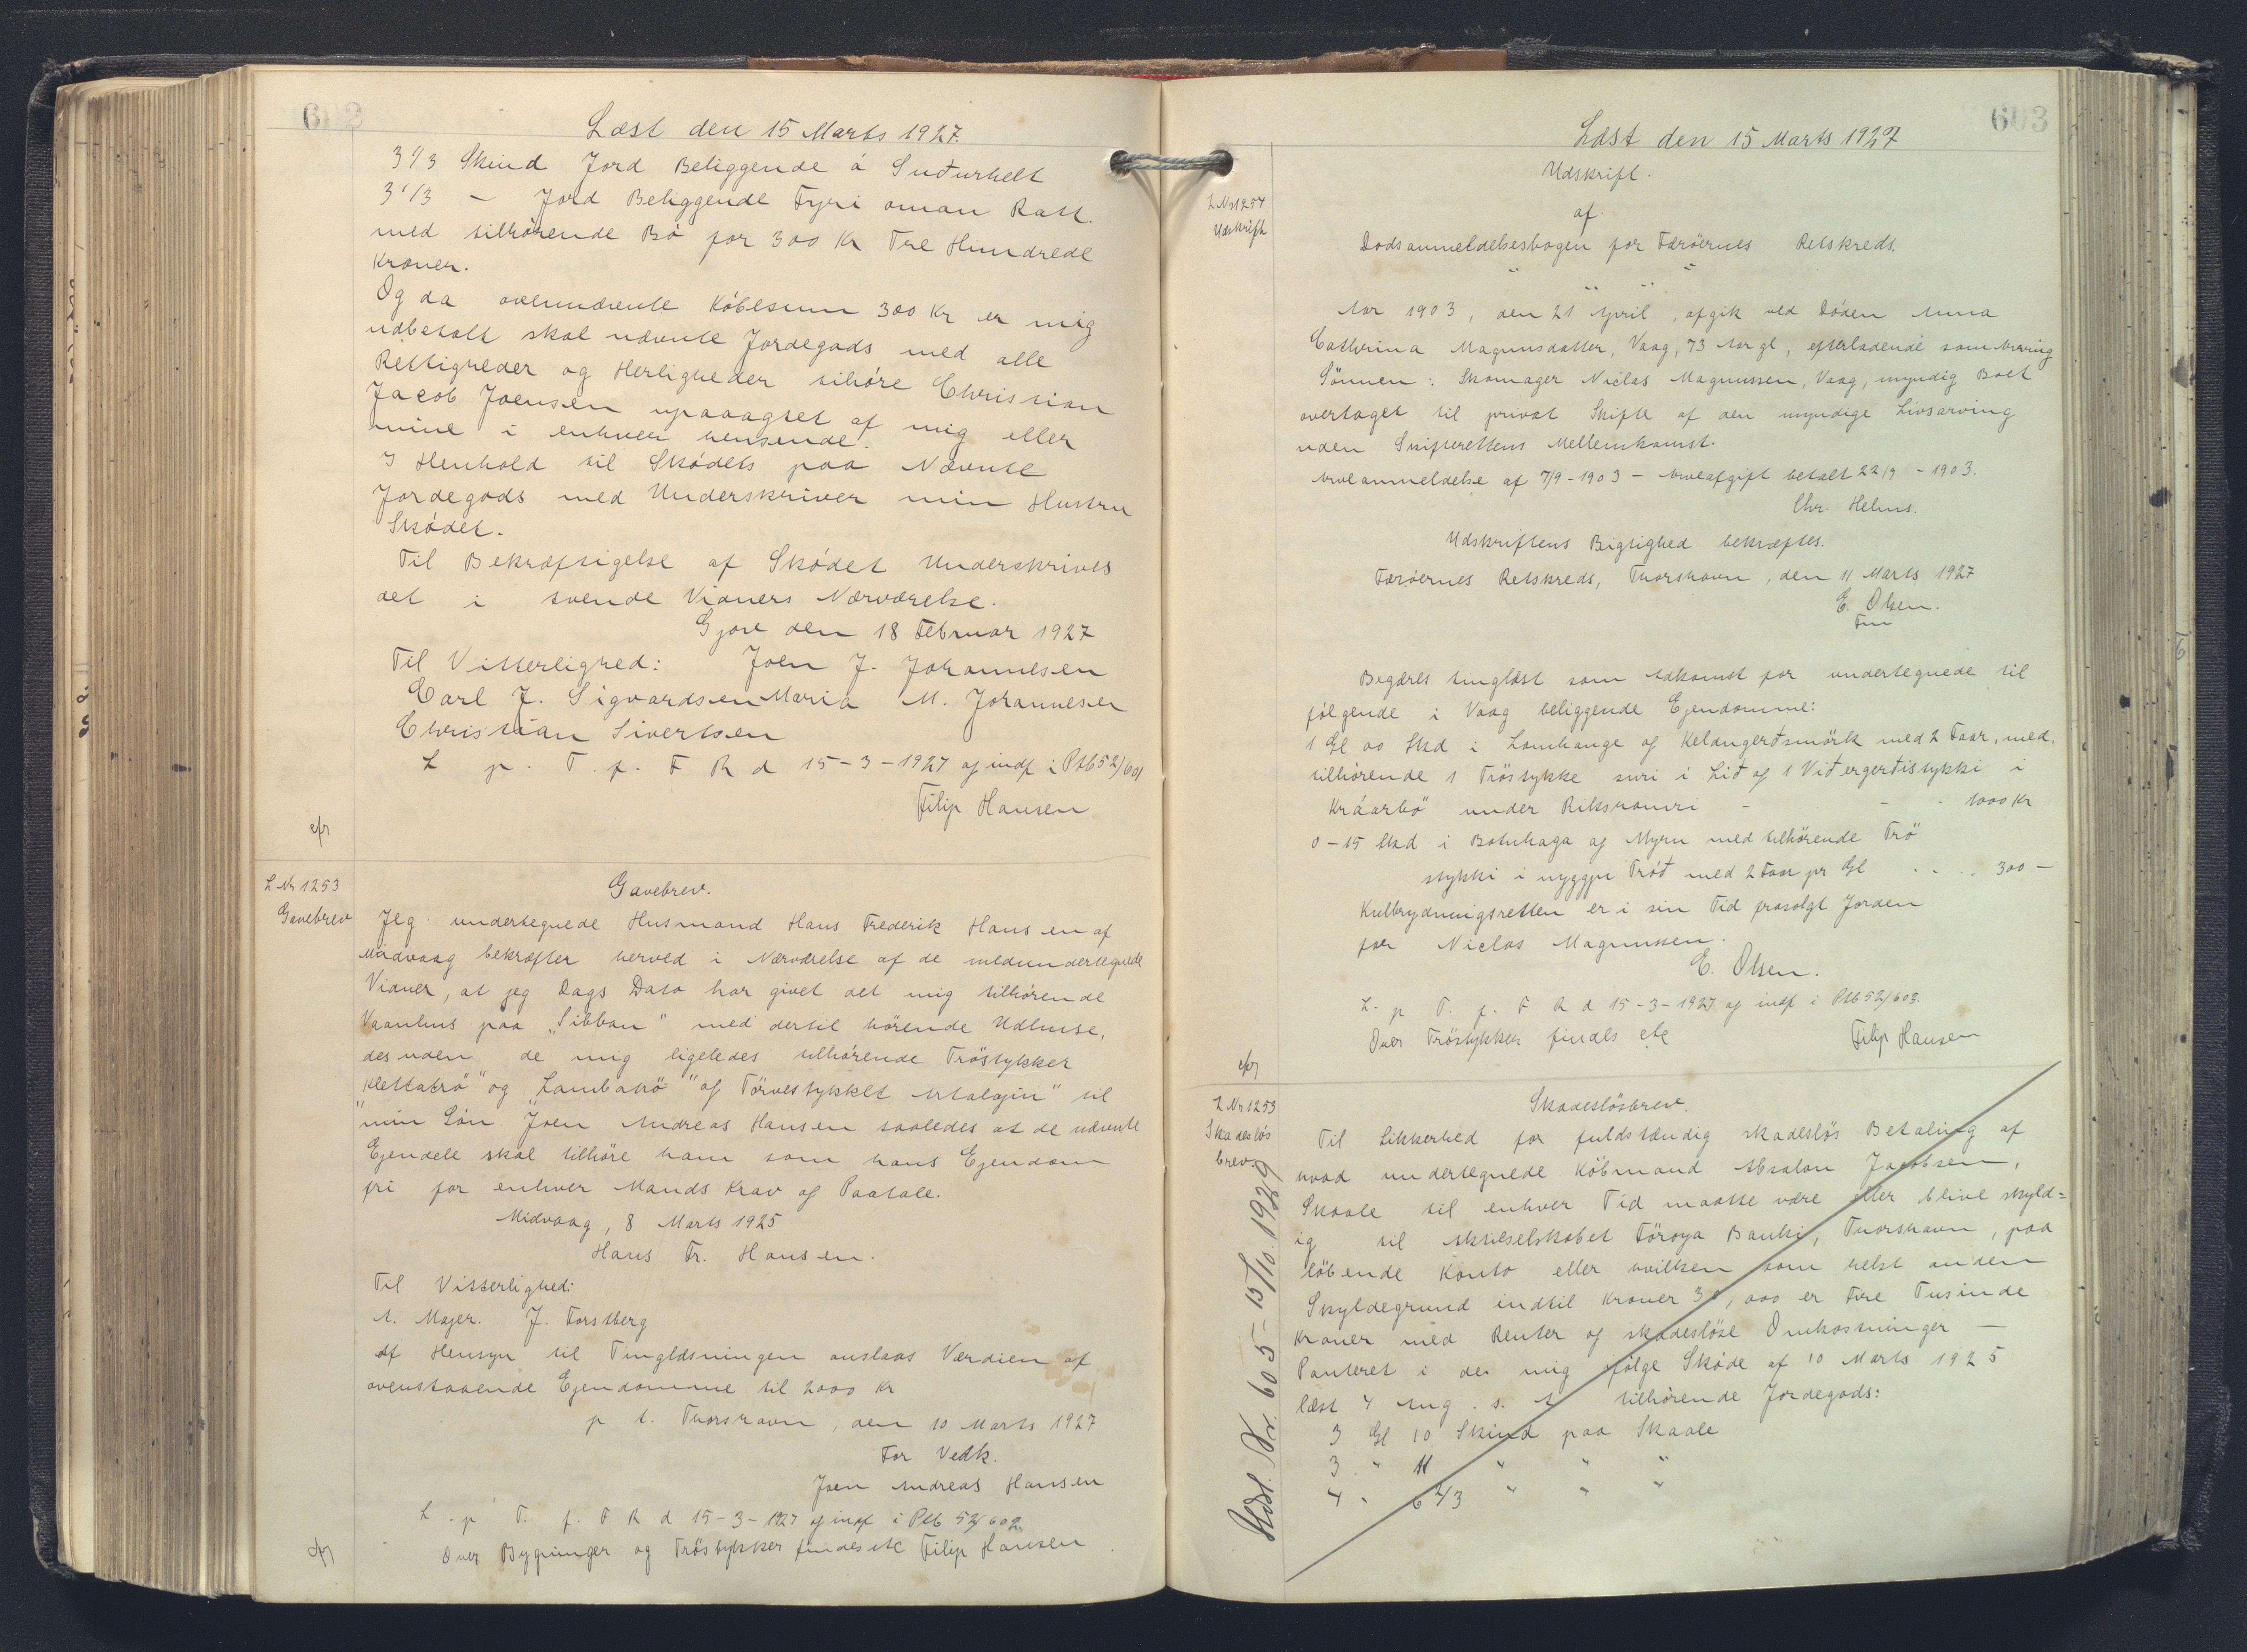 602
Læst den 15 Marts 1927.
3 1/3 Skind Jord Beliggende á Suđurhelt
3 1/3 – Jord Beliggende Fyri oman Ratt.
med tilhørende Bö for 300 Kr Tre Hundrede
Kroner.
Og da ovennævnte Købesum 300 Kr er mig
udbetalt skal nævnte Jordegods med alle
Rettigheder og Herligheder tilhøre Christian
Jacob Joensen upaaagtet af mig eller
mine i enhver henseende.
I Henhold til Skødets paa Nævnte
Jordegods med Underskriver min Hustru
Skødet.
Til Bekræftigelse af Skødet Underskrives
det i tvende Vidners Nærværelse.
Gjov den 18 Februar 1927
Til Vitterlighed: Joen J. Johannesen
Carl J. Sigvardsen Maria M. Johannesen
Christian Sivertsen
L p. T. f. F R d 15-3-1927 og indf i Ptb 52/601
Filip Hansen
L Nr 1253
Gavebrev
Gavebrev.
Jeg undertegnede Husmand Hans Frederik Hansen af
Midvaag bekræfter herved i Nærværelse af de medundertegnede
Vidner, at jeg Dags Dato har givet det mig tilhørende
Vaanhus paa "Sibban" med dertil hørende Udhuse,
desuden de mig ligeledes tilhørende Tröstykker
"Klettatrö" og "Lambatrö" og Törvestykket Artalojin" til
min Søn Joen Andreas Hansen saaledes at de nævnte
Ejendele skal tilhöre ham som hans Ejendom
fri for enhver Mands Krav og Paatale.
Midvaag, 8 Marts 1925
Hans Fr. Hansen.
Til Vitterlighed:
A. Majer. J. Forstberg
Af Hensyn til Tinglæsningen anslaas Værdien af
ovenstaaende Ejendomme til 2000 Kr
p t. Thorshavn, den 10 Marts 1927
For Vedk.
Joen Andreas Hansen
L. p T. f. F R d 15-3-1927 og indf i Ptb 52/602
Over Bygninger og Tröstykker findes etc Filip Hansen
603
Læst den 15 Marts 1927
L Nr 1254
Udskrift
Udskrift.
af
Dødsanmeldelsesbogen for Færöernes Retskreds.
Aar 1903, den 21 April, afgik ved Døden Anna
Cathrina Magnusdatter, Vaag, 73 Aar gl, efterladende som Arving
Sönnen: Skomager Niclas Magnussen, Vaag, myndig Boet
overtaget til privat Skifte af den myndige Livsarving
uden Skifterettens Mellemkomst.
Arveanmeldelse af 7/9-1903 – Arveafgift betalt 22/9-1903.
Chr. Helms.
Udskriftens Rigtighed bekræftes.
Færöernes Retskreds, Thorshavn, den 11 Marts 1927
E. Olsen.
Fm
Begæres tinglæst som Adkomst for undertegnede til
følgende i Vaag beliggende Ejendomme:
1 Gl 00 Skd i Lomhange og Kelangerđsmörk med 2 Faar, med
tilhörende 1 Tröstykke suri i Liđ og 1 Viđergerđistykki i
Kráarbö under Riksvanri – – – 1000 Kr
0 – 15 Skd i Botnhaga og Myru med tilhörende Trö
stykki i nyggju Tröđ med 2 Faar pr Gl . . . 300 –
Kulbrydningsretten er i sin Tid frasolgt Jorden
for Niclas Magnussen.
E. Olsen.
L. p T. f. F R d 15-3-1927 og indf i Ptb 52/603.
Over Tröstykker findes etc Filip Hansen
L Nr 1253
Skadesløs
brev
Skadesløsbrev.
Til Sikkerhed for fuldstændig skadesløs Betaling af
hvad undertegnede Købmand Absalon Jacobsen,
Skaale til enhver Tid maatte være eller blive skyld=
ig til Aktieselskabet Föroya Banki, Thorshavn, paa
løbende Konto eller hvilken som helst anden
Skyldegrund indtil Kroner 3000 er Tre Tusinde
Kroner med Renter og skadesløse Omkostninger –
Panteret i det mig ifølge Skøde af 10 Marts 1925
læst 4 Aug. s. A tilhørende Jordegods:
3 Gl 10 Skind paa Skaale
3 " 11 " " "
4 " 6 2/3 " " "
Udsl. Nr. 605 – 15/10. 1929